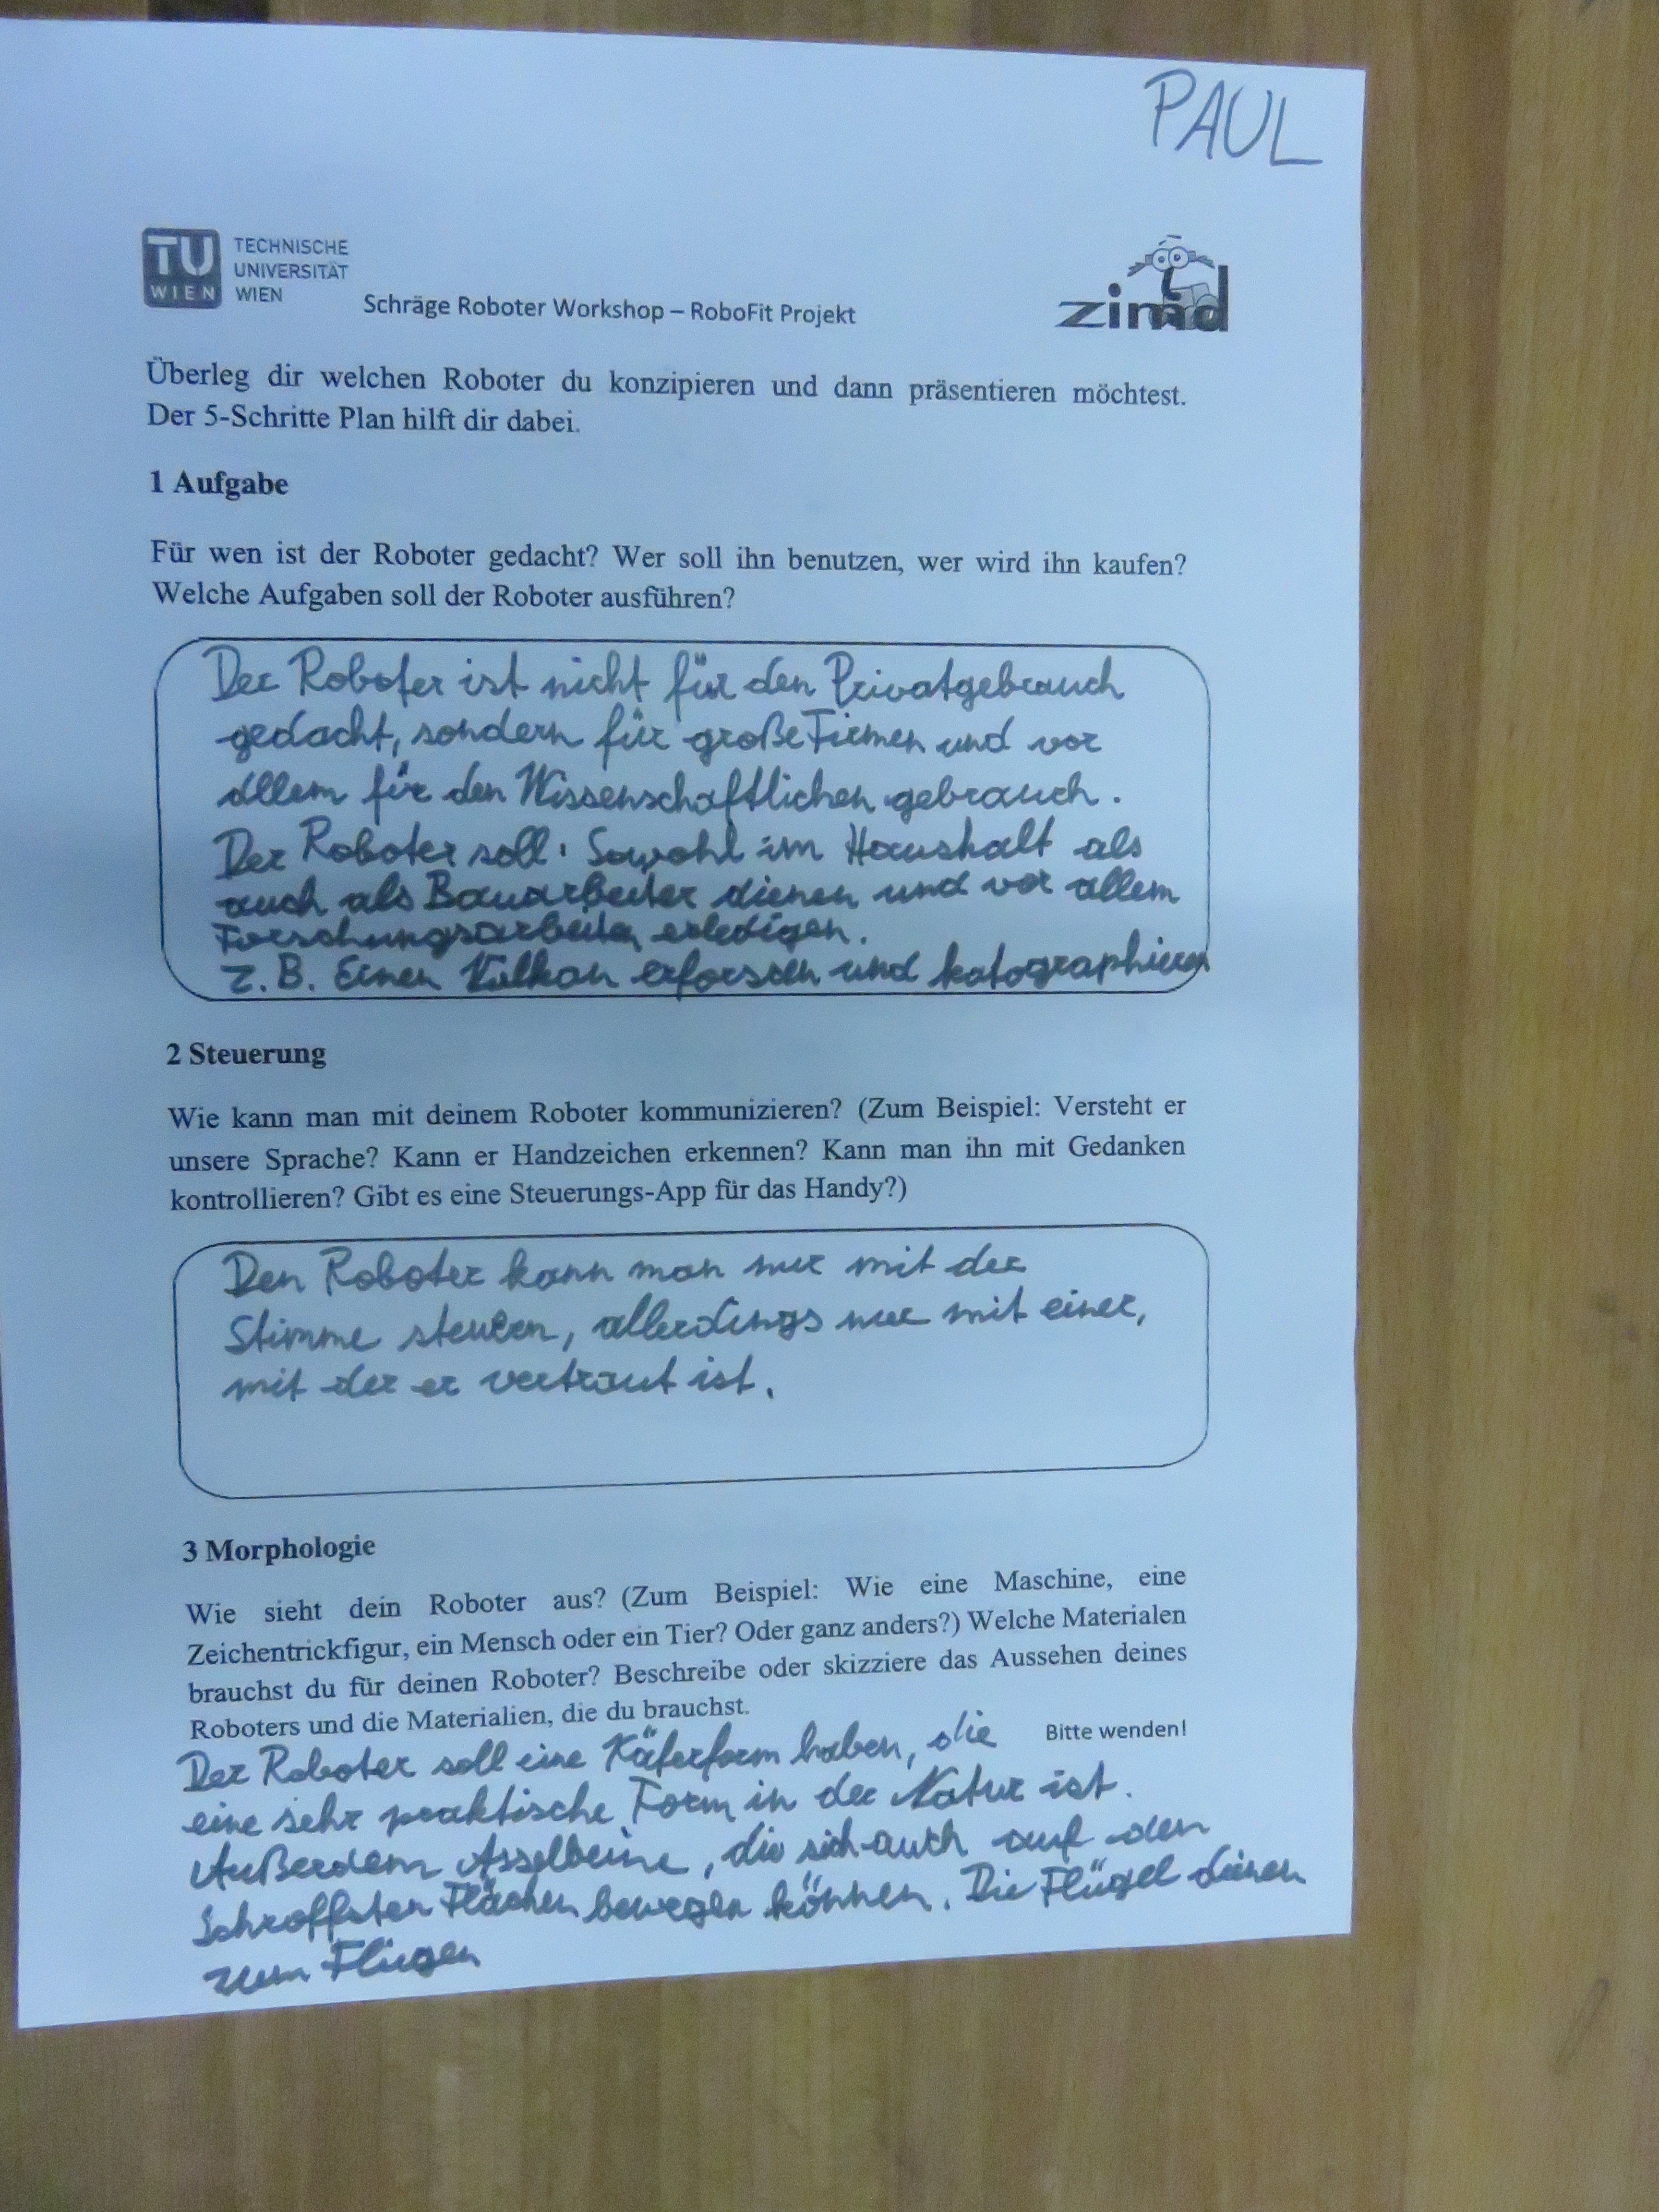 PAUL
TU
WIEN
TECHNISCHE
UNIVERSITÄT
WIEN
Schräge Roboter Workshop – RoboFit Projekt
zimd
Überleg dir welchen Roboter du konzipieren und dann präsentieren möchtest.
Der 5-Schritte Plan hilft dir dabei.
1 Aufgabe
Für wen ist der Roboter gedacht? Wer soll ihn benutzen, wer wird ihn kaufen?
Welche Aufgaben soll der Roboter ausführen?
Der Roboter ist nicht für den Privatgebrauch
gedacht, sondern für große Firmen und vor
allem für den Wissenschaftlichen gebrauch.
Der Roboter soll: Sowohl im Haushalt als
auch als Bauarbeiter dienen und vor allem
Forschungsarbeiten erledigen.
z.B. Einen Vulkan erforschen und katographieren
2 Steuerung
Wie kann man mit deinem Roboter kommunizieren? (Zum Beispiel: Versteht er
unsere Sprache? Kann er Handzeichen erkennen? Kann man ihn mit Gedanken
kontrollieren? Gibt es eine Steuerungs-App für das Handy?)
Den Roboter kann man nur mit der
Stimme steuern, allerdings nur mit einer,
mit der er vertraut ist.
3 Morphologie
Wie sieht dein Roboter aus? (Zum Beispiel: Wie eine Maschine, eine
Zeichentrickfigur, ein Mensch oder ein Tier? Oder ganz anders?) Welche Materialen
brauchst du für deinen Roboter? Beschreibe oder skizziere das Aussehen deines
Roboters und die Materialien, die du brauchst.
Bitte wenden!
Der Roboter soll eine Käferform haben, die
eine sehr praktische Form in der Natur ist.
Außerdem Asselbeine, die sich auch auf den
Schroffsten Flächen bewegen können. Die Flügel dienen
zum Fliegen